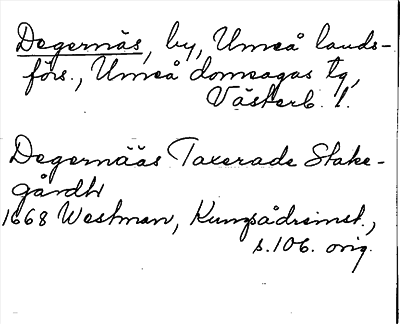 Degernäs, by, Umeå lands-
förs., Umeå domsagas tg,
Västerb. l.
Degernääs Taxerade Stake-
gårdh
1668 Westman, Kungsådreinst.,
s. 106. orig.